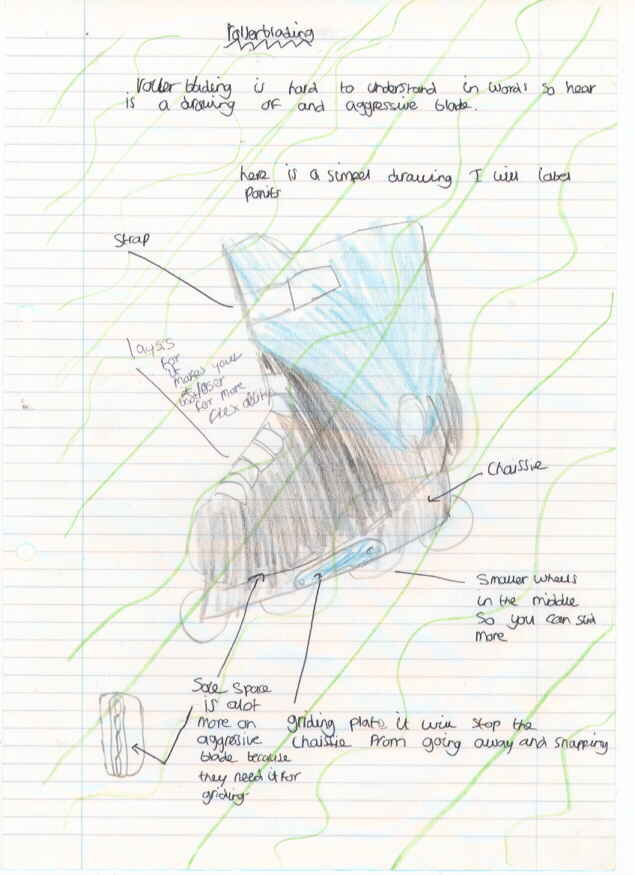 Rollerblading
roller blading is hard to understand in words so hear
is a drawing of and aggressive blade.
here is a simpel drawing I will label
Strap
laysis
for
it
makes your
for more
flex ability
Chaissie
Smaller wheels
in the middle
So you can
more
Sole Space
is alot
more on
aggressive
blade because
they need it for
griding
griding plate it will stop the
Chaissie from going away and snapping